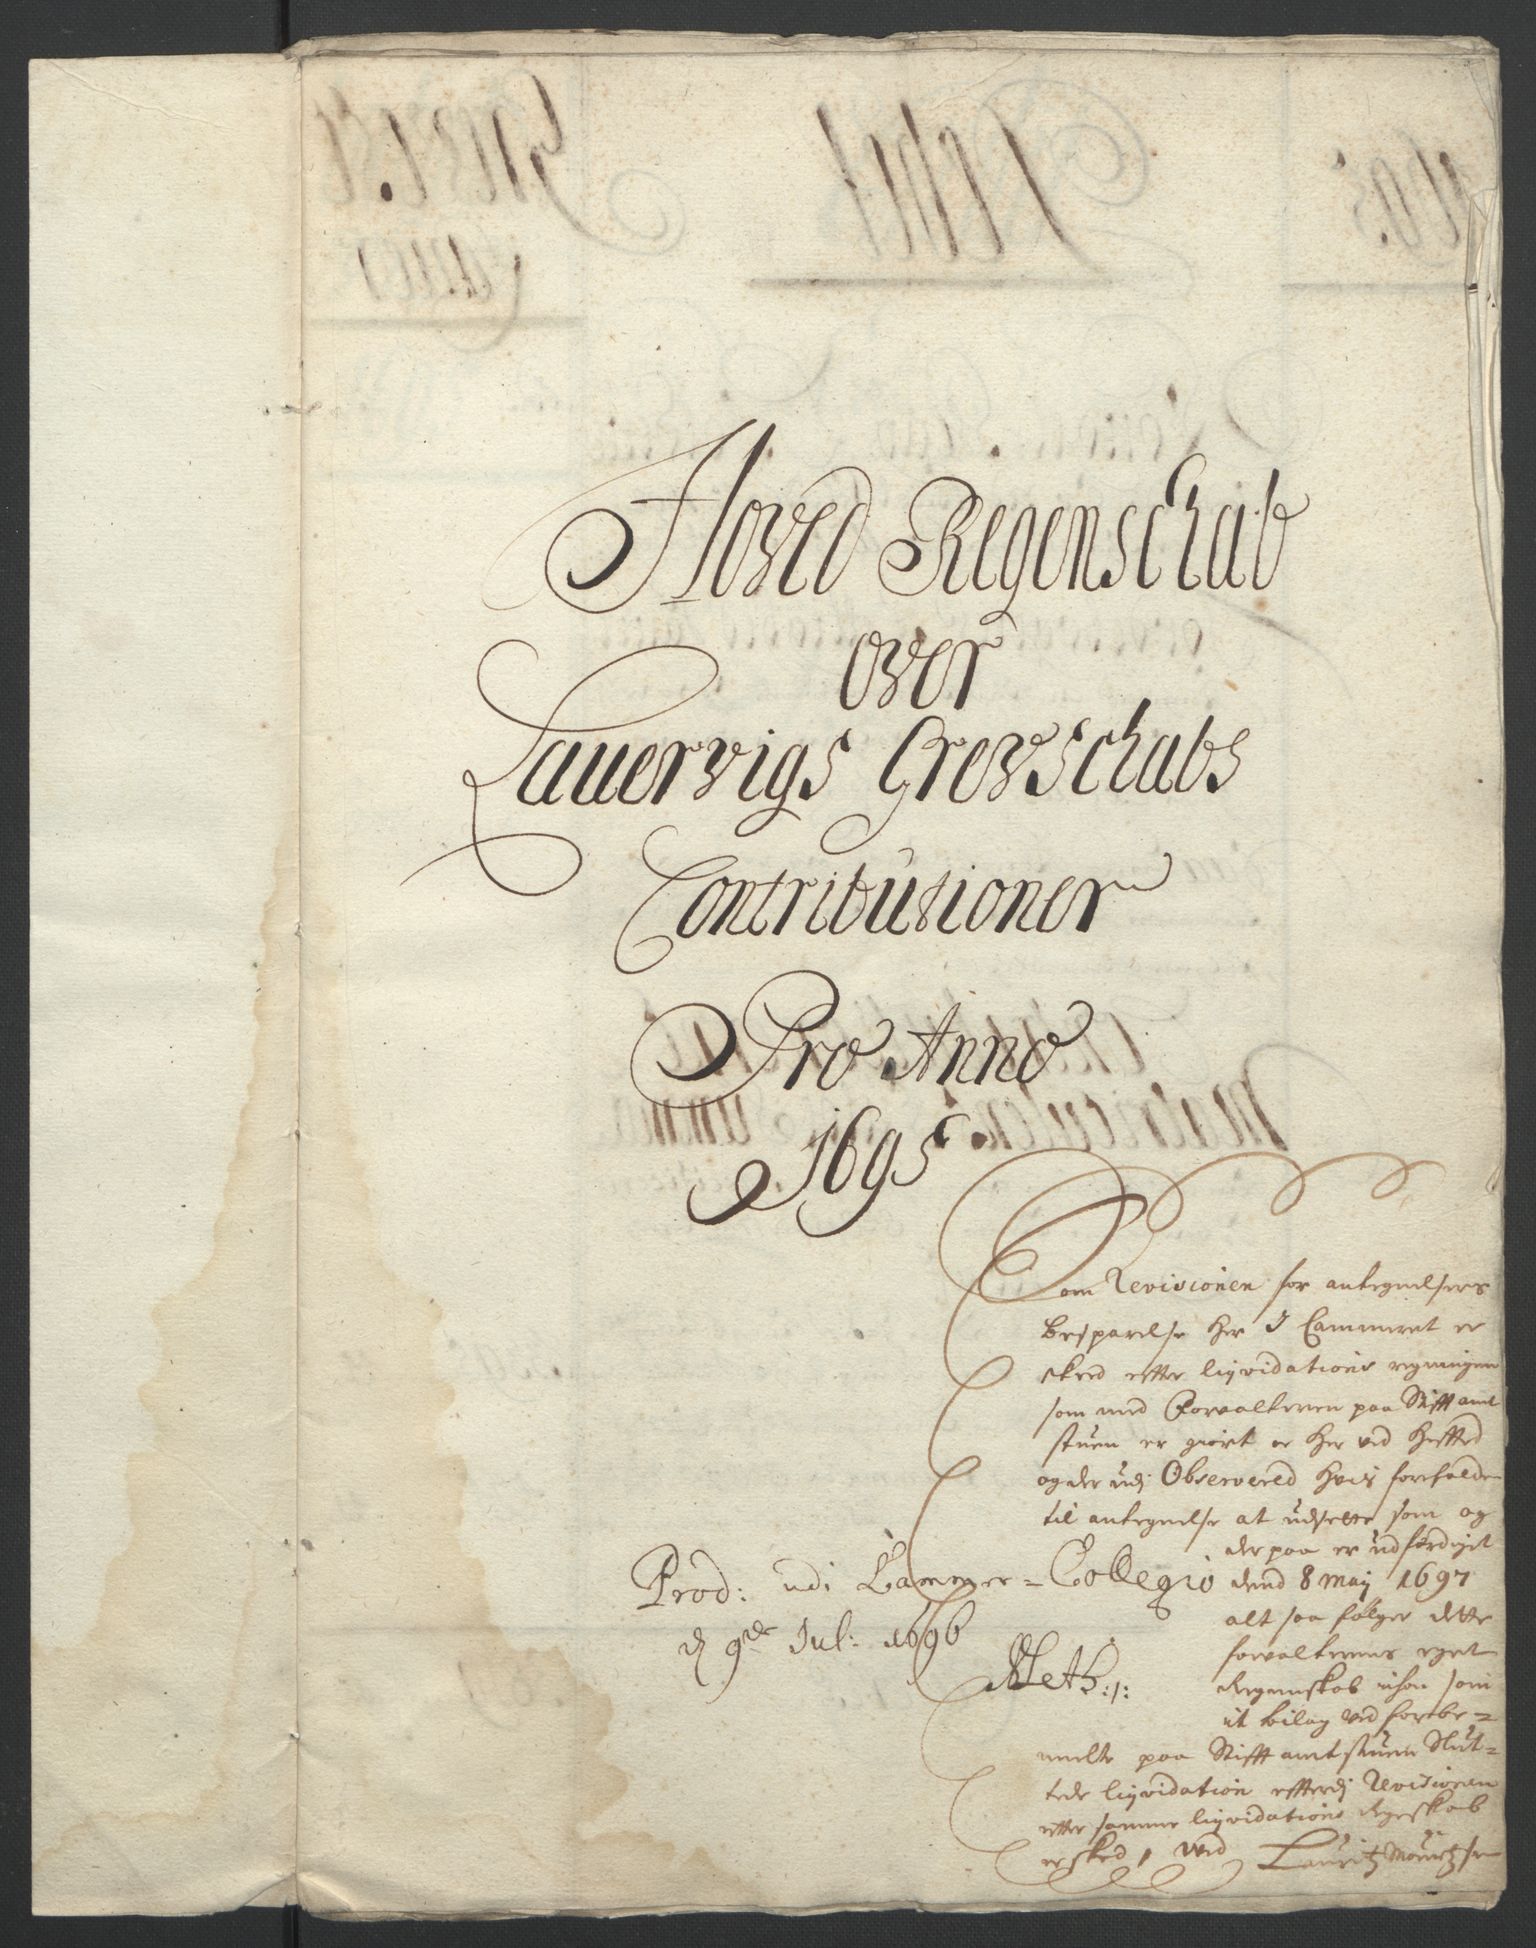 Hoved Regenschab
over
Lauervigs Grevschabs
Contributioner
Pro Anno
1695
Som Revisionen for antegnelsers
besparelse her I Cammeret er
skeed efter liqvidations regningen
som med Forvalteren paa Stifft amt
stuen er giort er her ved heffted
og der udj Observered hvis forefalden
til antegnelse at udsette som og
der paa er udferdiget
dend 8 Maij 1697
alt saa følger dette
forvalterens eget
Regenskab som
it bilag ved forbe-
melte paa Stifft amt stuen Slut-
tede liqvidation effterdj Revisionen
efter samme liqvidations Regenskab
er skeed, Ved Lauritz Mouritzsen
Prod: udi Cammer-Collegio
d 9de Jul: 1696
Meth:s: